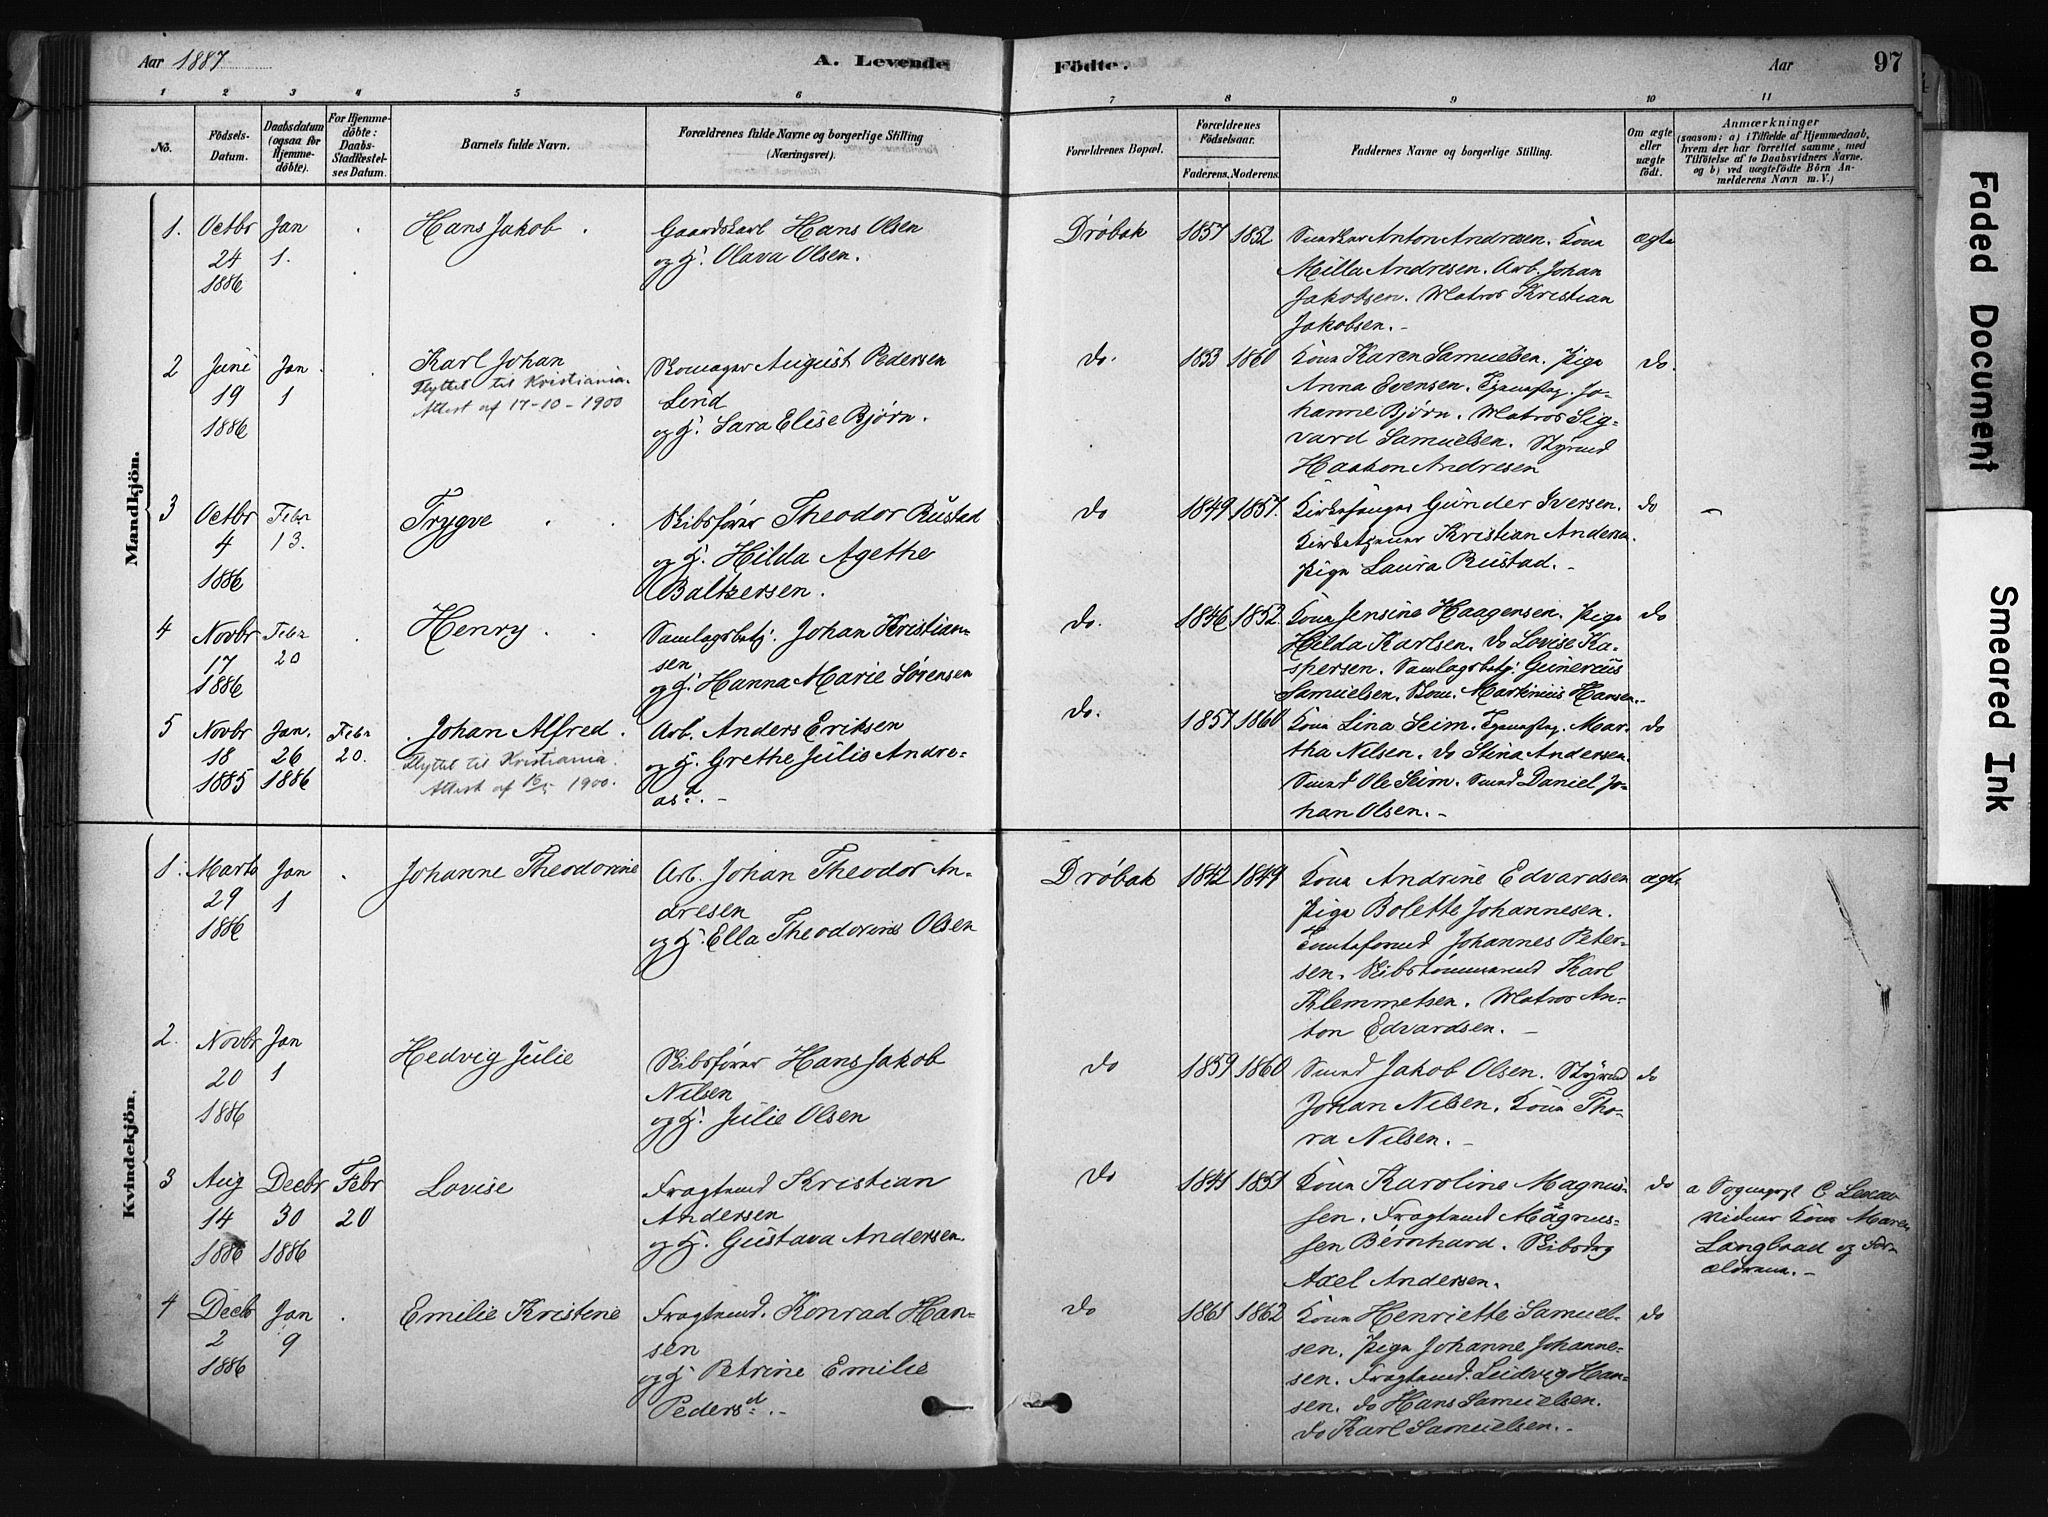 Aar 1887
A. Levende Födte.
Aar
97
1 2 3 4 5 6 7 8 9 10 11
No.
Födsels-
Datum.
Daabsdatum
(ogsaa for
Hjemme-
döbte).
For Hjemme-
döbte:
Daabs-
Stadfæstel-
ses Datum.
Barnets fulde Navn.
Forældrenes fulde Navne og borgerlige Stilling
(Næringsvei).
Forældrenes Bopæl.
Forældrenes
Födselsaar.
Faderens. Moderens.
Faddernes Navne og borgerlige Stilling.
Om ægte
eller
uægte
födt.
Anmærkninger
(saasom: a) i Tilfælde af Hjemmedaab,
hvem der har forrettet samme, med
Tilföielse af to Daabsvidners Navne.
og b) ved uægtefödte Börn An-
melderens Navn m. V.)
Mandkjön.
1. Octbr 24 1886
Jan 1.
Hans Jakob
Gaardskarl Hans Olsen
og H. Olava Olsen.
Drøbak
1851 1852
Anton Andresen. Kona
Milla Andresen. Arb. Johan
Jakobsen. Matros Kristian
Jakobsen. -
ægte
2 Juni 19 1886
Jan 1
Karl Johan
Flyttet til Kristiania.
Attest af 17-10-1900
Skomager August Pedersen
Lind
og H. Sara Elise Bjørn.
do.
1853 1860
Kona Karen Samuelsen. Pige
Anna Evensen. Jo-
hanne Bjørn. Matros Sig-
vard Samuelsen. Styrmd
Haakon Andresen
do.
3 Octbr 4 1886
Febr 13.
Trygve
Skibsfører Theodor Rustad
og H. Hilda Agethe
Baltzersen.
do
1849 1857.
Kirkesanger Gunder Iversen.
Kirketjener Kristian Andersen.
Pige Laura Rustad. -
do
-
4 Novbr 17 1886
Febr 20
Henry
Samlagsbestj. Johan Kristian-
sen
og H. Hanna Marie Sørensen
do.
1846 1852.
Kona Jensine Haagensen. Pige
Hilda Karlsen. do Lovise Ka-
spersen. Samlagsbestj. Gunerius
Samuelsen. Martinius Hansen. -
do
5 Novbr 18 1885
Jan. 26 1886
Febr 20.
Johan Alfred.
Flyttet til Kristiania.
Attest af 1900.
Arb. Anders Eriksen
og H. Grethe Julie Andre-
asd. -
do.
1857 1860
Kona Lina Seim. Mar-
tha Nilsen. do Stina Andersen.
Smed Ole Seim. Smed Daniel Jo-
han Olsen. -
do
Kvindekjön.
1. Marts 29 1886
Jan 1
Johanne Theodorine
Arb. Johan Theodor An-
dresen
og H. Ella Theodorine Olsen
Drøbak
1842 1849
Kona Andrine Edvardsen
Pige Bolette Johannesen.
Johannes Peter-
sen. Skibstømmermd Karl
Klemmetsen. Matros An-
ton Edvardsen. -
ægte
2. Novbr 20 1886
Jan 1
Hedvig Julie
Skibsfører Hans Jakob
Nilsen
og H. Julie Olsen
do
1859 1860
Smed Jakob Olsen. Styrmd
Johan Nilsen. Kona Tho-
ra Nilsen. -
do
3 Aug 14 1886
Decbr 30 1886
Febr 20
Lovise
Fragtemd Kristian
Andersen
og H. Gustava Andersen.
do
1841 1851
Kona Karoline Magnus-
sen. Fragtemd Magnus-
sen Bernhard. Skibsbyg
Axel Andersen.
do
a Sogneprest C
Vidner Kona Maren
Langbraad og For-
ældrene. -
4 Decbr 2 1886
Jan 9
Emilie Kristine
Fragtemd. Konrad Han-
sen
og H Petrine Emilie
Pedersd. -
do
1861 1862
Kona Henriette Samuel-
sen. Pige Johanne Johanne-
sen. Fragtemd. Ludvig Han-
sen. do Hans Samuelsen.
do Karl Samuelsen. -
do
Faded Document
Smeared Ink